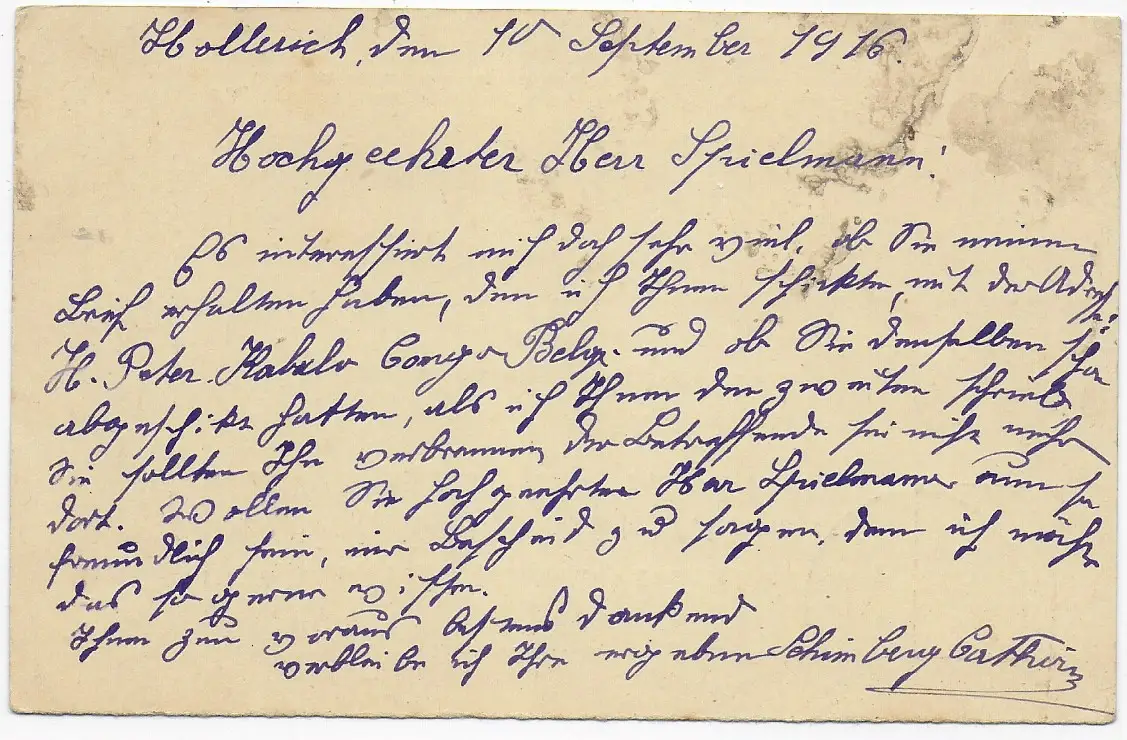 Hollerich, den 10 September 1916.
Hochgeehrter Herr Spielmann!
Es interessirt mich doch sehr viel, ob Sie meinen
Brief erhalten haben, den ich Ihnen schickte, mit der Adresse:
H. Peter. Kabalo Congo Belge. und ob Sie denselben schon
abgeschikt hatten, als ich Ihnen den zweiten schrieb
Sie sollten Ihn verbrennen der Betreffende sei nicht mehr
dort. Wollen Sie hochgeehrter Herr Spielmann nun so
freundlich sein, mir Bescheid zu sagen, denn ich möchte
das so gerne wissen.
Ihnen zum voraus bestens dankend
verbleibe ich Ihre ergebene Schimberg Catherin